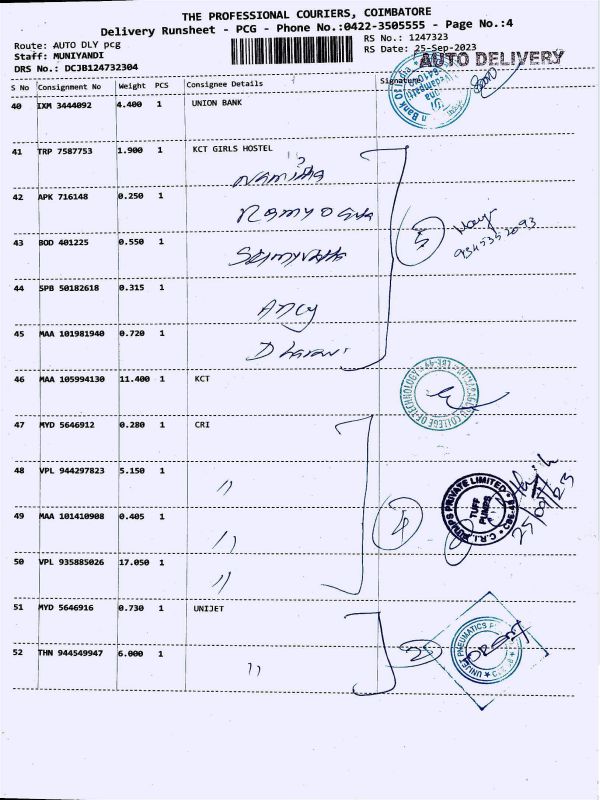 THE PROFESSIONAL COURIERS, COIMBATORE
Delivery Runsheet - PCG - Phone No.:0422-3505555 - Page No.:4
Route: AUTO DLY pcg
RS No.: 1247323
Staff: MUNIYANDI
RS Date: 25-Sep-2023
DRS No.: DCJB124732304
AUTO DELIVERY
S No Consignment No Weight PCS Consignee Details Signature
40 IXM 3444092 4.400 1 UNION BANK
41 TRP 7587753 1.900 1 KCT GIRLS HOSTEL
Namitha
42 APK 716148 0.250 1
43 BOD 401225 0.550 1
5
44 SPB 50182618 0.315 1
Ancy
45 MAA 101981940 0.720 1
Dharani
46 MAA 105994130 11.400 1 KCT
COLLEGE OF TECHNOLOGY
47 MYD 5646912 0.280 1 CRI
48 VPL 944297823 5.150 1 "
C.R.I. PUMPS PRIVATE LIMITED
TUFF PUMPS
49 MAA 101410908 0.405 1 "
4
50 VPL 935885026 17.050 1 "
51 MYD 5646916 0.730 1 UNIJET
52 THN 944549947 6.000 1 "
UNIJET PNEUMATICS